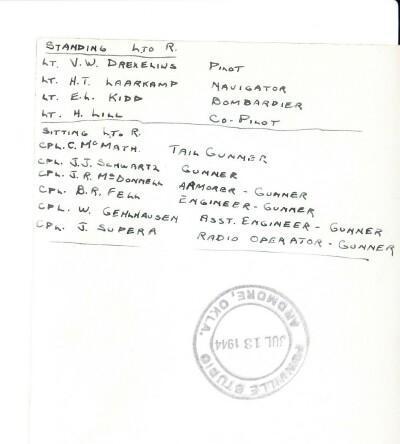 STANDING L TO R.
LT. V.W. DREXELIUS PILOT
LT. H.T. LAARKAMP NAVIGATOR
LT. E.L. KIDD BOMBARDIER
LT. H. LILL CO-PILOT
SITTING L TO R.
CPL. C. McMATH. TAIL GUNNER
CPL. J.J. SCHWARTZ GUNNER
CPL. J.R. McDONNELL ARMORER - GUNNER
CPL. B.R. FELL ENGINEER - GUNNER
CPL. W. GEHLHAUSEN ASST. ENGINEER - GUNNER
CPL. J. SUPERA RADIO OPERATOR - GUNNER
STUDIO
JUL 13 1944
ARDMORE, OKLA.